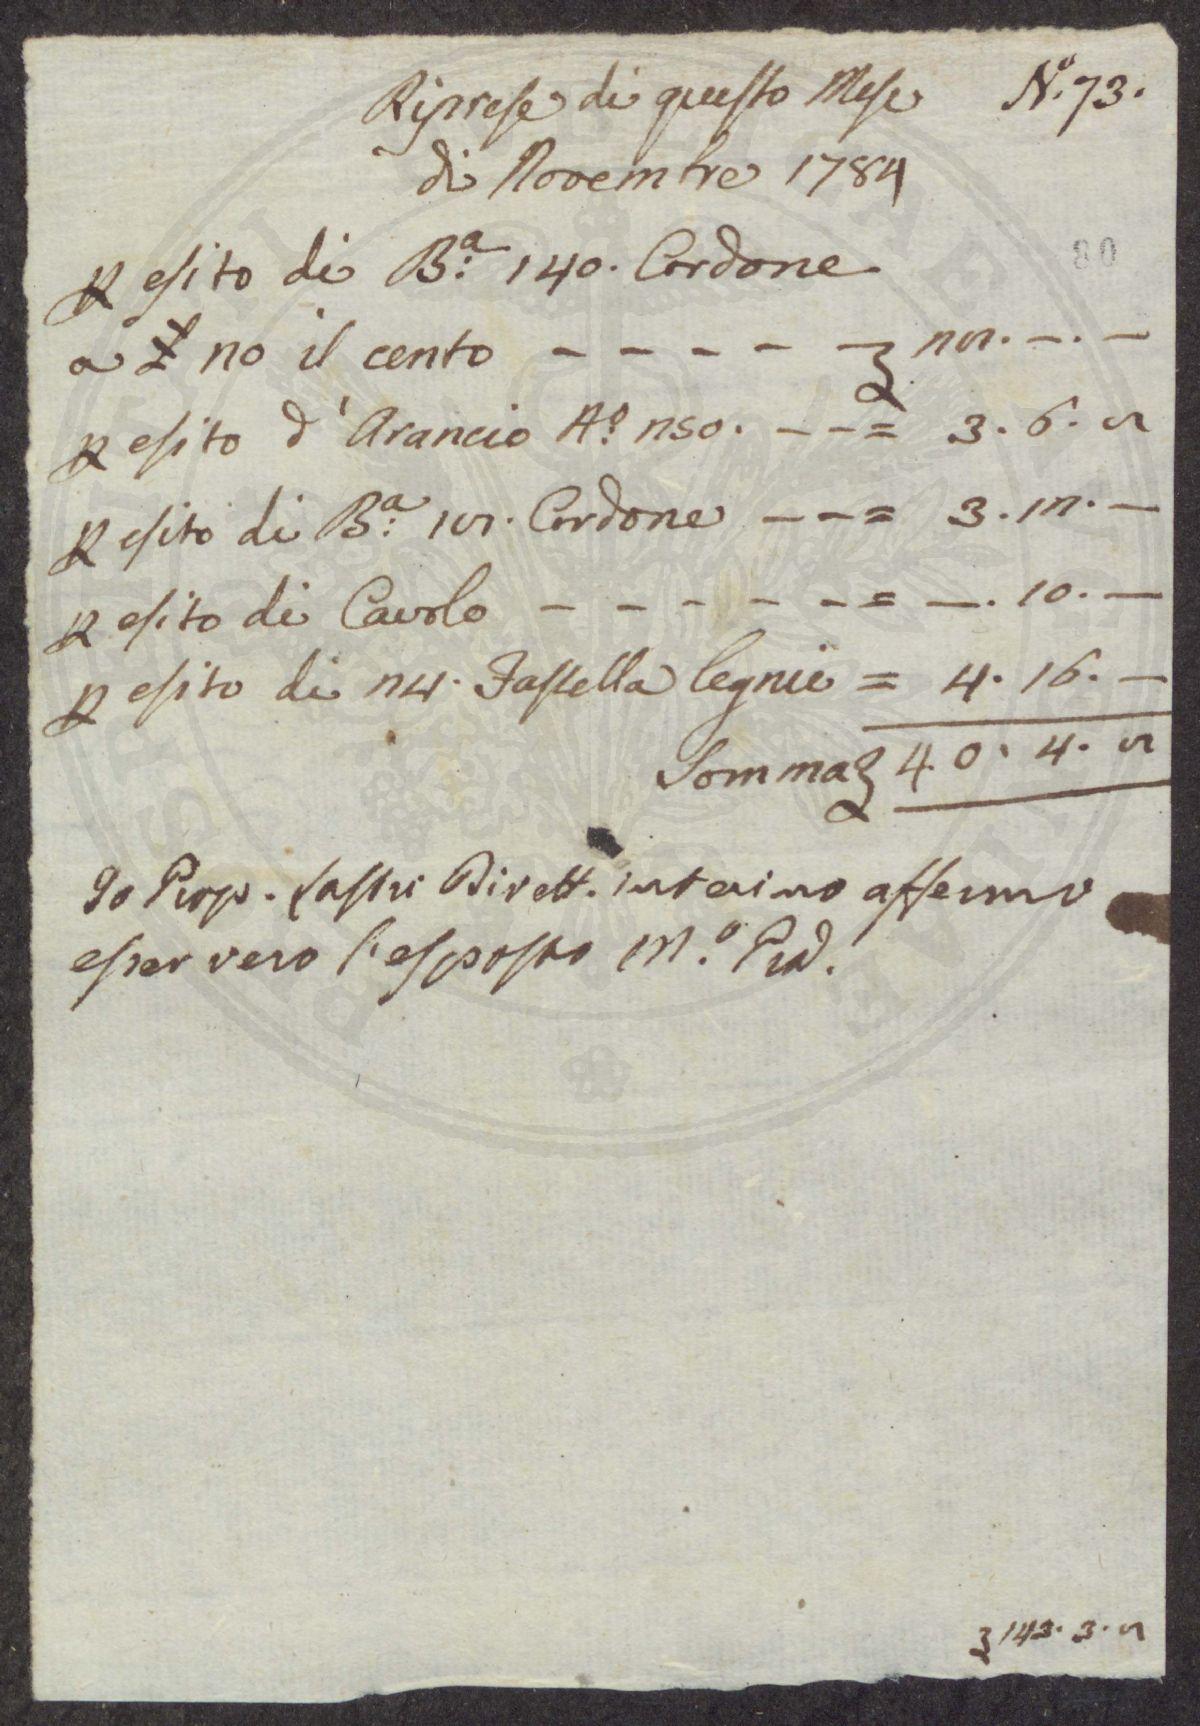 Riprese di questo Mese N.º 73.
di Novembre 1784
80
p esito di B.ª 140. Cordone
a £ 20 il cento - - - - - £ 28. -. -
p esito d'Arancio N.º 250. - - = 3. 6. 8
p esito di B.ª 18. Cordone - - = 3. 12. -
p esito di Cavolo - - - - - - = -. 10. -
p esito di 24. Fastella legnie = 4. 16. -
Somma £ 40. 4. 8
Io Prosp. Dirett. interino affermo
esser vero l'esposto M.º Prà.
£ 143. 3. 8